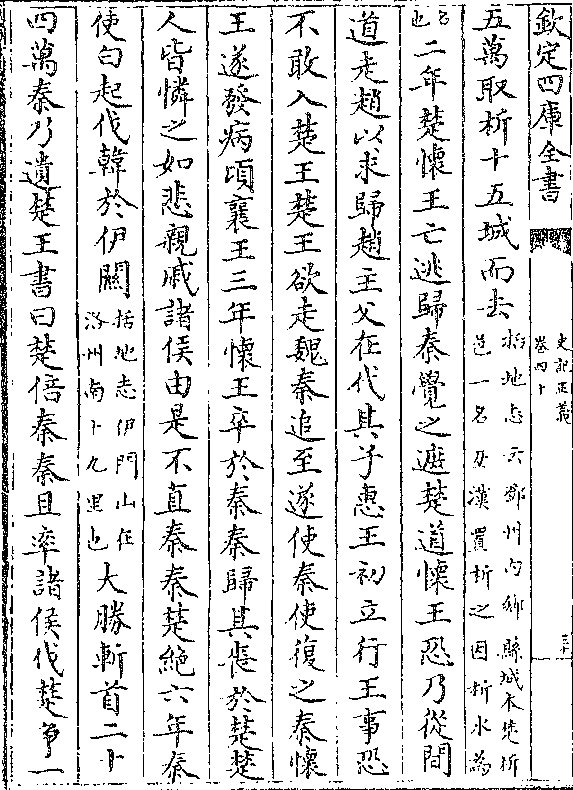 欽定四庫全書
史記正義
卷四十
五萬取析十五城而去
括地志云鄧州內鄉縣城本楚析
邑一名丑漢置析之因析水為
名也
二年楚懷王亡逃歸秦覺之遮楚道懷王恐乃從間
道走趙以求歸趙主父在代其子惠王初立行王事恐
不敢入楚王楚王欲走魏秦追至遂使秦使復之秦懷
王遂發病頃襄王三年懷王卒於秦秦歸其喪於楚楚
人皆憐之如悲親戚諸侯由是不直秦秦楚絶六年秦
使白起伐韓於伊闕
括地志伊闕山在
洛州南十九里也
大勝斬首二十
四萬秦乃遺楚王書曰楚倍秦秦且率諸侯伐楚爭一